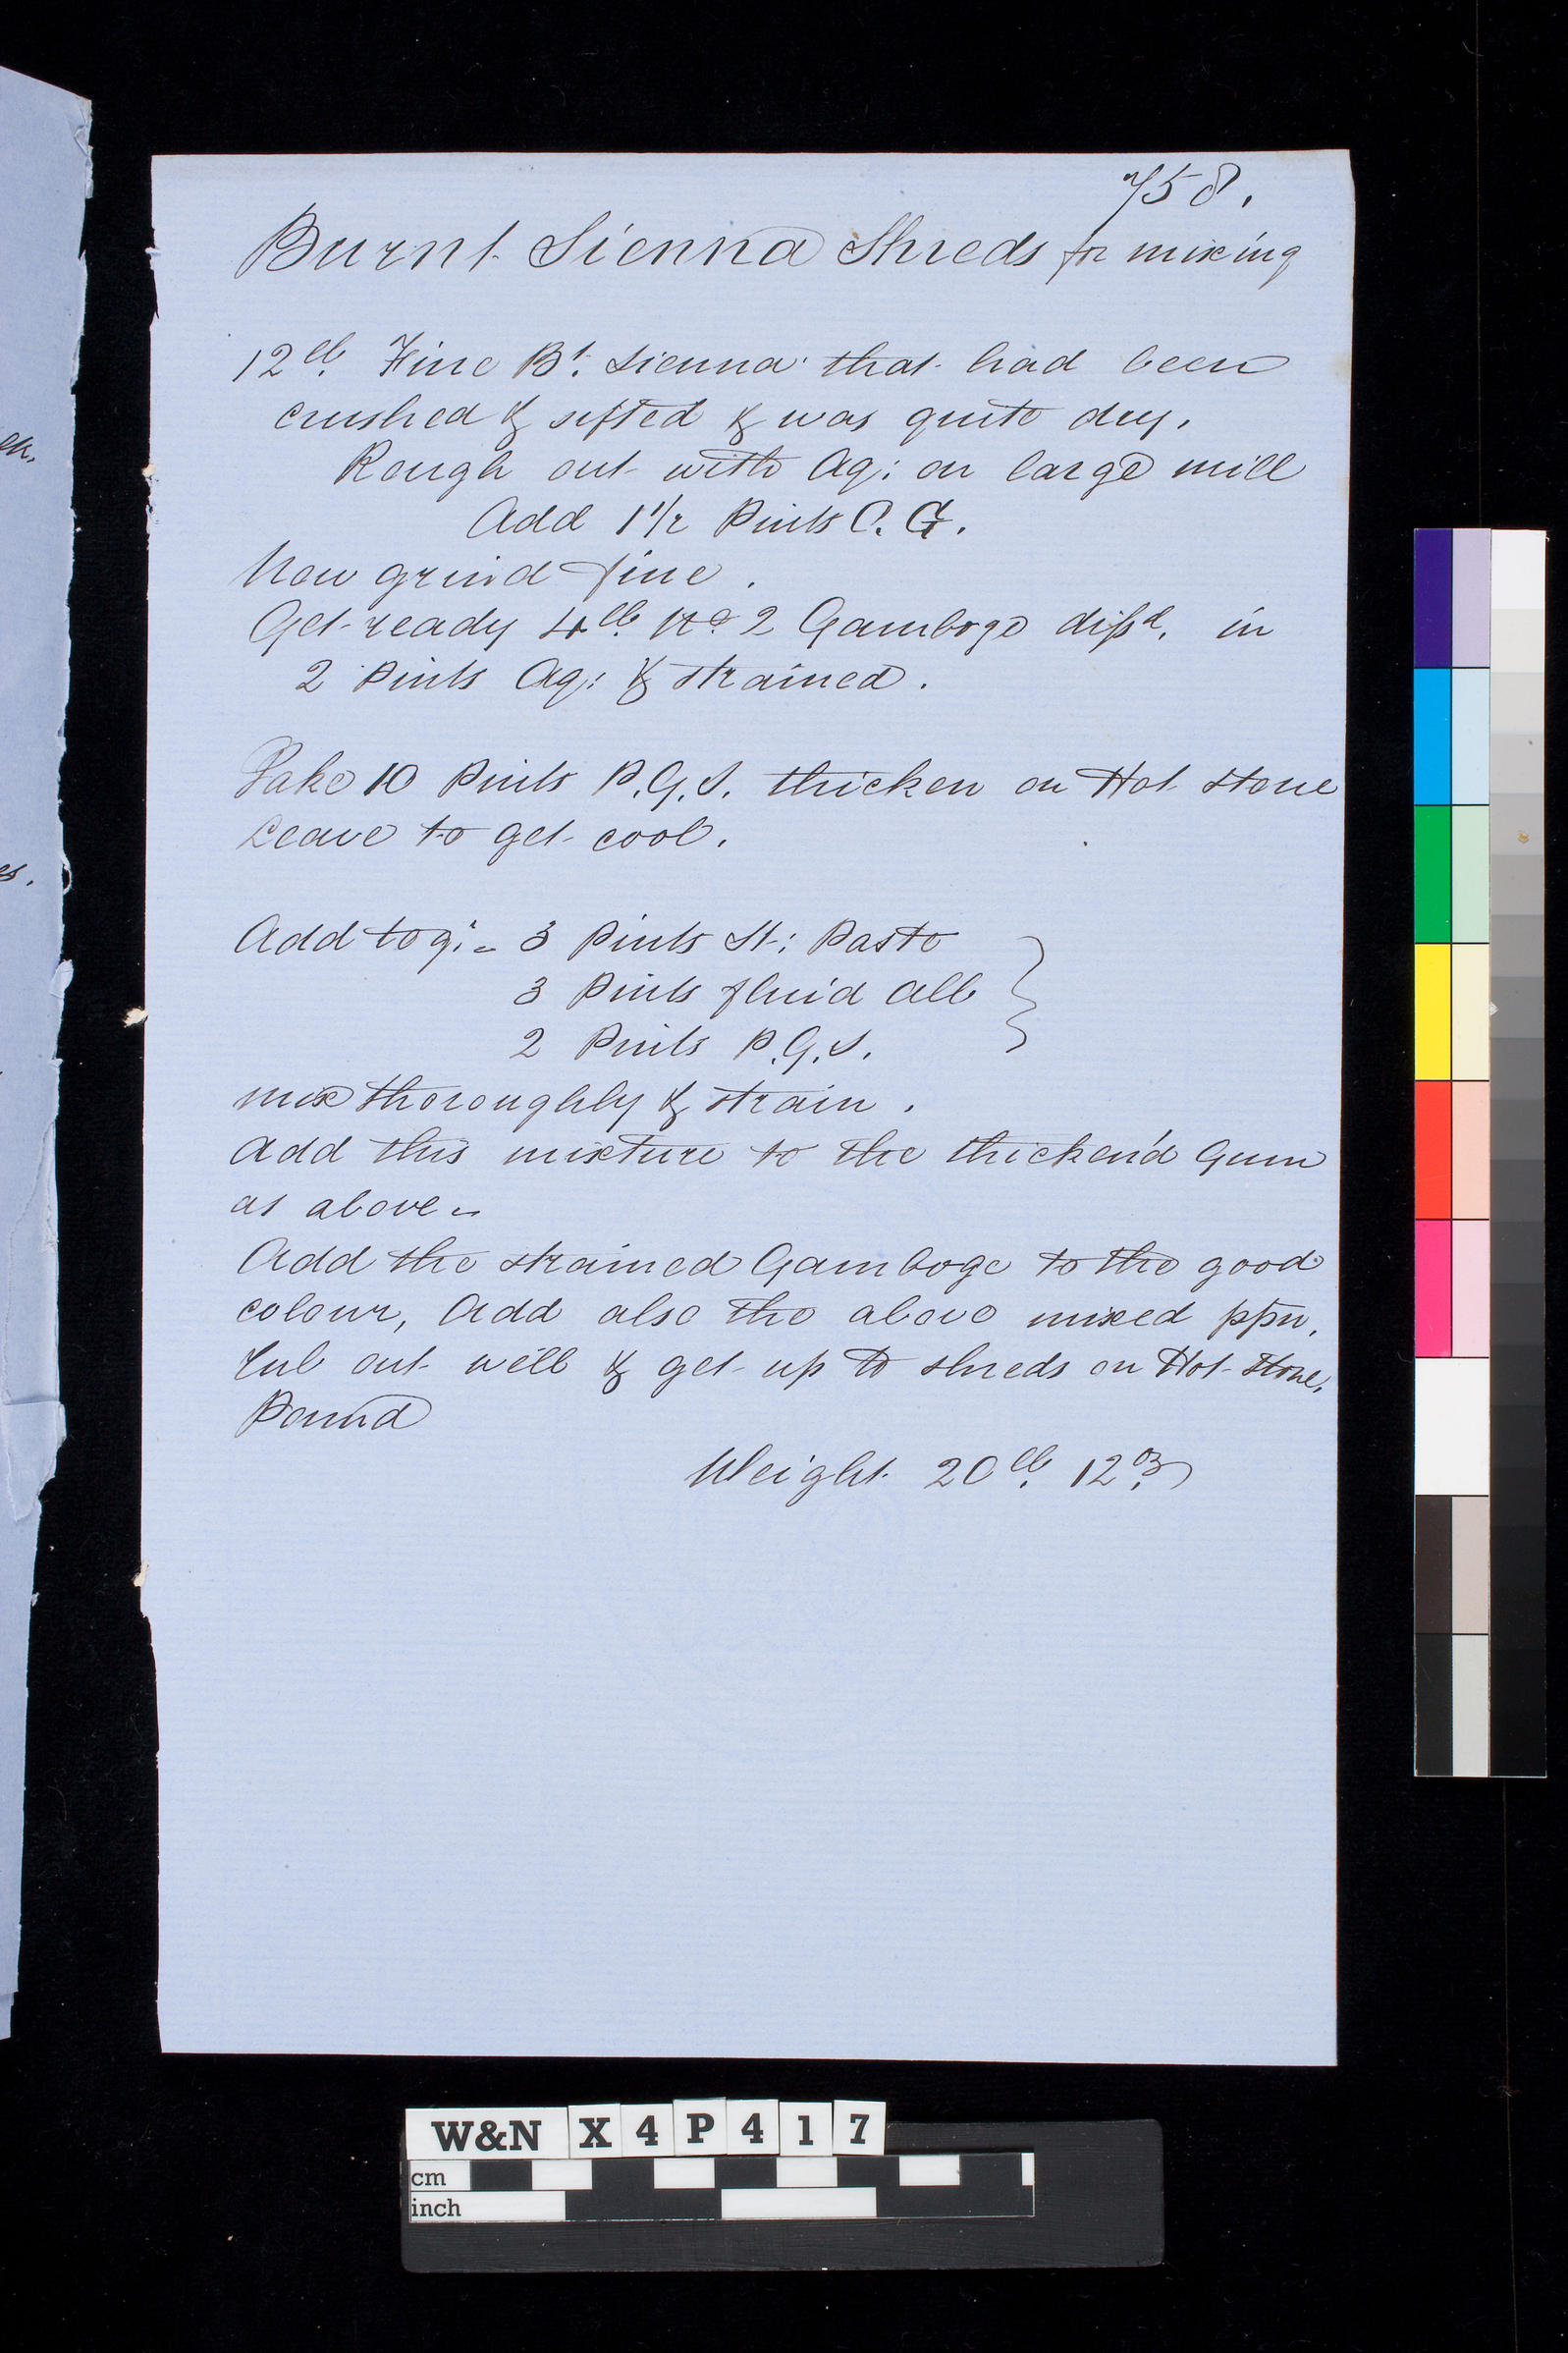 758.
Burnt Sienna Shreds for mixing
12 lb. Fine Bt. Sienna that had been
crushed & sifted & was quite dry.
Rough out with Aq: on large mill
Add 1 1/2 Pints C. G.
Now grind fine.
Get ready 4 lb. No 2 Gamboge dissd. in
2 Pints Aq: & strained.
Take 10 Pints P.G.S. thicken on Hot Stone
Leave to get cool.
Add tog:- 3 Pints St: Paste
3 Pints fluid Alb
2 Pints P.G.S.
mix thoroughly & strain.
Add this mixture to the thicken'd Gum
as above -
Add the strained Gamboge to the good
colour, Add also the above mixed ppn,
rub out well & get up to shreds on Hot Stone,
Pound
Weight 20 lb. 12 oz
en.
es.
W&N X 4 P 4 1 7
cm
inch